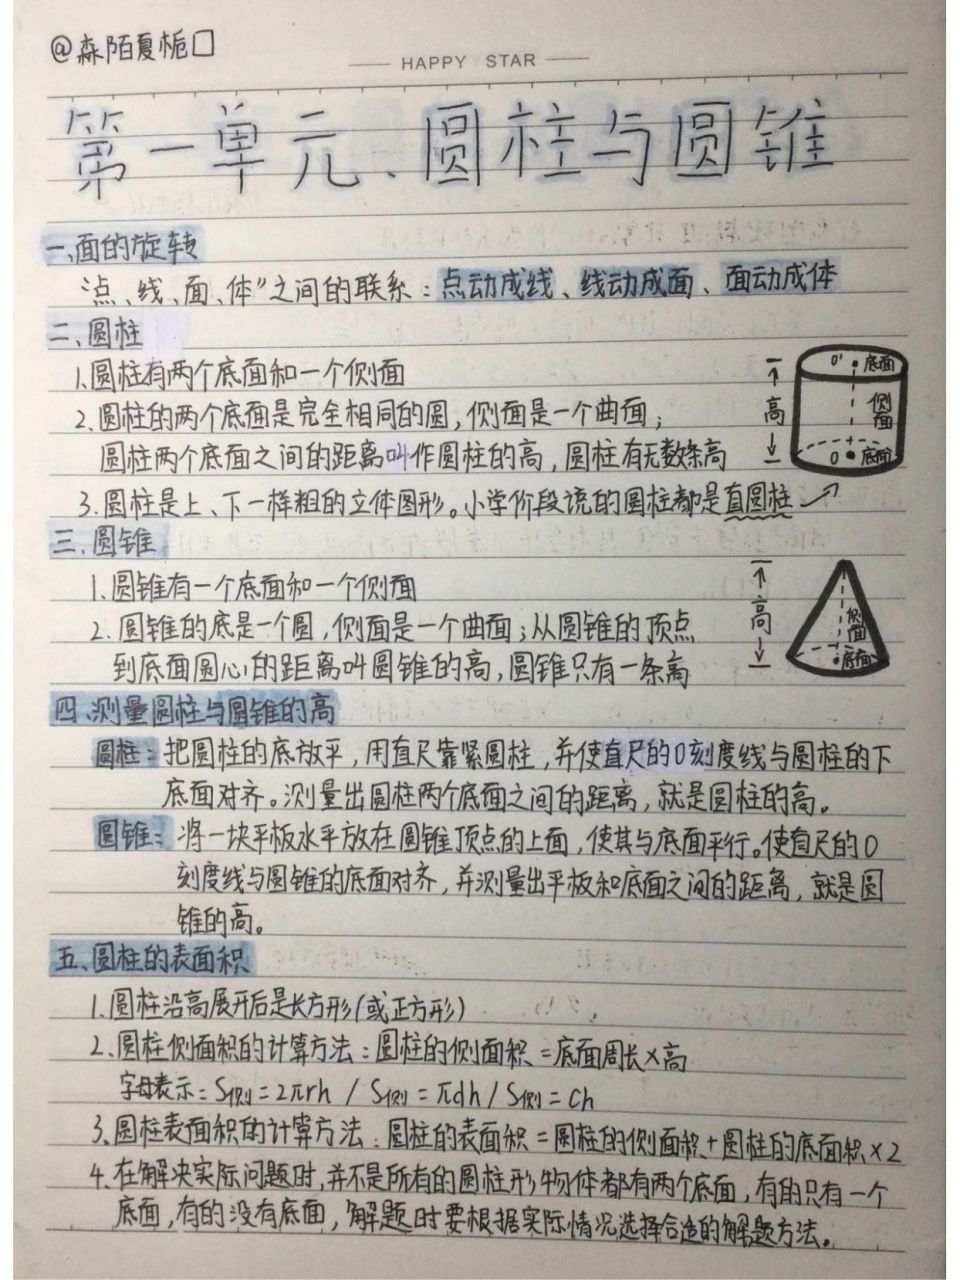 @森陌夏栀口
HAPPY STAR
第一单元、圆柱与圆锥
一、面的旋转
“点、线、面、体”之间的联系：点动成线、线动成面、面动成体
二、圆柱
1.圆柱有两个底面和一个侧面
2.圆柱的两个底面是完全相同的圆，侧面是一个曲面；
圆柱两个底面之间的距离叫作圆柱的高，圆柱有无数条高
3.圆柱是上、下一样粗的立体图形。小学阶段说的圆柱都是直圆柱
高
O' 底面
侧面
O 底面
三、圆锥
1.圆锥有一个底面和一个侧面
2.圆锥的底是一个圆，侧面是一个曲面；从圆锥的顶点
到底面圆心的距离叫圆锥的高，圆锥只有一条高
高
侧面
底面
四、测量圆柱与圆锥的高
圆柱：把圆柱的底放平，用直尺靠紧圆柱，并使直尺的0刻度线与圆柱的下
底面对齐。测量出圆柱两个底面之间的距离，就是圆柱的高。
圆锥：将一块平板水平放在圆锥顶点的上面，使其与底面平行。使直尺的0
刻度线与圆锥的底面对齐，并测量出平板和底面之间的距离，就是圆
锥的高。
五、圆柱的表面积
1.圆柱沿高展开后是长方形(或正方形)
2.圆柱侧面积的计算方法：圆柱的侧面积=底面周长×高
字母表示：S侧=2πrh / S侧=πdh / S侧=Ch
3.圆柱表面积的计算方法：圆柱的表面积=圆柱的侧面积+圆柱的底面积×2
4.在解决实际问题时，并不是所有的圆柱形物体都有两个底面，有的只有一个
底面，有的没有底面，解题时要根据实际情况选择合适的解题方法。